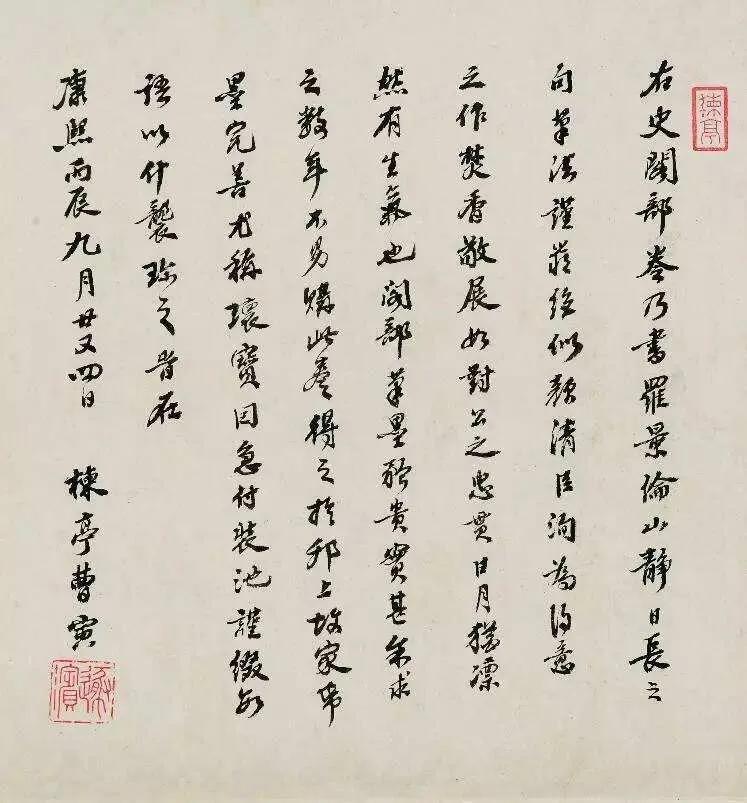 楝亭
右史閣部卷乃書羅景倫山靜日長之
句筆法謹嚴絕似顏清臣洵為得意
之作焚香敬展如對公之忠貫日月猶凜
然有生氣也閣部筆墨矜貴實甚余求
之數年不易購此卷得之於邗上故家帋
墨完善尤稱瓌寶因急付裝池謹綴數
語以什襲珍之旹在
康熙丙辰九月廿又四日 楝亭曹寅